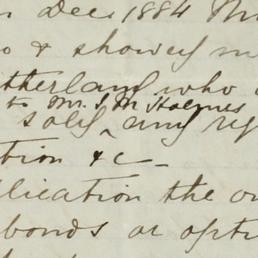 Dec 1884
& showed
who
to Mr. J M Holmes
sold, any
tion &c
lication the
bonds or opti